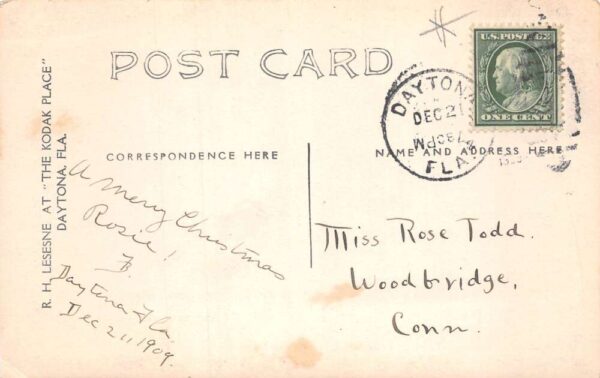 POST CARD
U.S. POSTAGE
ONE CENT
DAYTONA
DEC 21
PM
FLA.
CORRESPONDENCE HERE
NAME AND ADDRESS HERE
R. H. LESESNE AT "THE KODAK PLACE"
DAYTONA, FLA.
A Merry Christmas
Rosie!
B.
Daytona Fla.
Dec 21 1909.
Miss Rose Todd.
Woodbridge,
Conn.